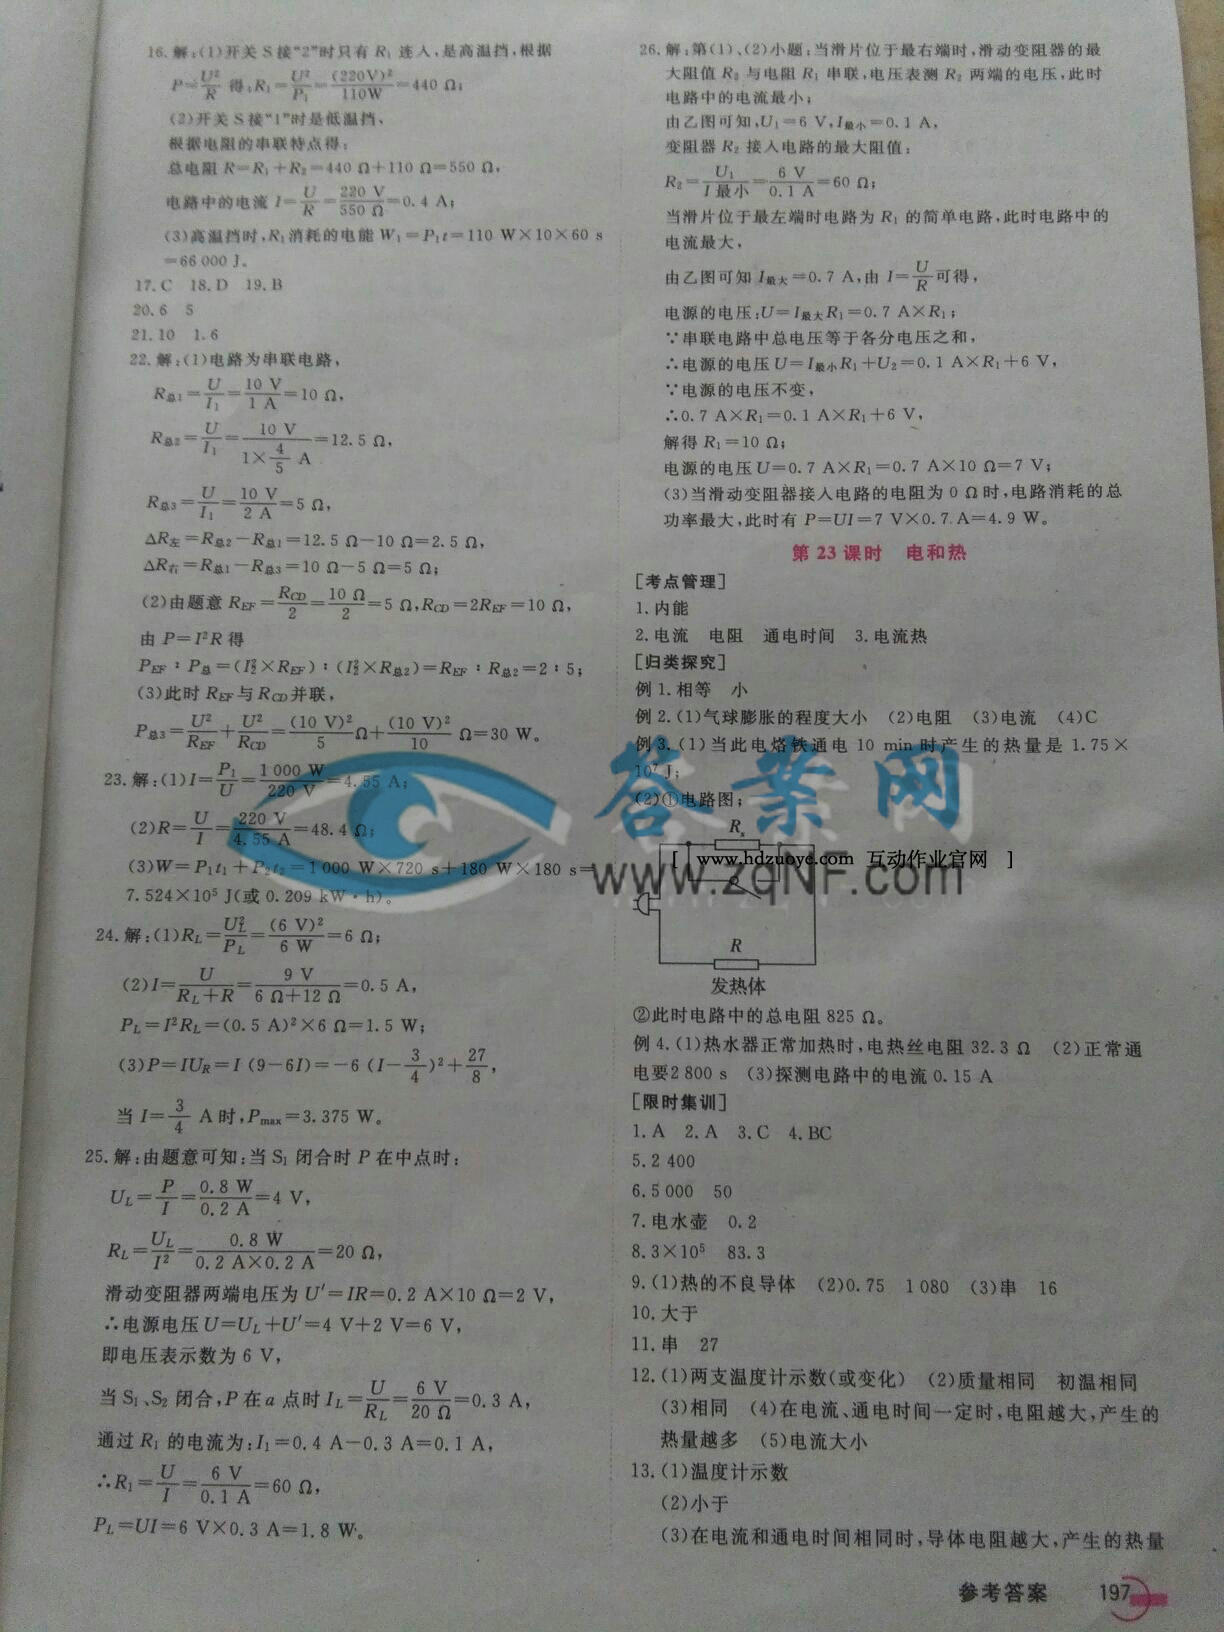 16.解:(1)开关S接“2”时只有R₁连入,是高温挡,根据
P=U²/R 得:R₁=U²/P₁=(220V)²/110W=440 Ω;
(2)开关S接“1”时是低温挡,
根据电阻的串联特点得:
总电阻R=R₁+R₂=440 Ω+110 Ω=550 Ω,
电路中的电流I=U/R=220 V/550 Ω=0.4 A;
(3)高温挡时,R₁消耗的电能W₁=P₁t=110 W×10×60 s
=66 000 J。
17.C 18.D 19.B
20.6 5
21.10 1.6
22.解:(1)电路为串联电路,
R总1=U/I₁=10 V/1 A=10 Ω,
R总2=U/I₁=10 V/(1×4/5 A)=12.5 Ω,
R总3=U/I₁=10 V/2 A=5 Ω,
ΔR左=R总2−R总1=12.5 Ω−10 Ω=2.5 Ω,
ΔR右=R总1−R总3=10 Ω−5 Ω=5 Ω;
(2)由题意R_EF=R_CD/2=10 Ω/2=5 Ω,R_CD=2R_EF=10 Ω,
由P=I²R得
P_EF∶P总=(I₂²×R_EF)∶(I₂²×R总2)=R_EF∶R总2=2∶5;
(3)此时R_EF与R_CD并联,
P总3=U²/R_EF+U²/R_CD=(10 V)²/5 Ω+(10 V)²/10 Ω=30 W。
23.解:(1)I=P₁/U=1 000 W/220 V=4.55 A;
(2)R=U/I=220 V/4.55 A=48.4 Ω;
(3)W=P₁t₁+P₂t₂=1 000 W×720 s+180 W×180 s=
7.524×10⁵ J(或0.209 kW·h)。
24.解:(1)R_L=U_L²/P_L=(6 V)²/6 W=6 Ω;
(2)I=U/(R_L+R)=9 V/(6 Ω+12 Ω)=0.5 A,
P_L=I²R_L=(0.5 A)²×6 Ω=1.5 W;
(3)P=IU_R=I(9−6I)=−6(I−3/4)²+27/8,
当I=3/4 A时,Pmax=3.375 W。
25.解:由题意可知:当S₁闭合时P在中点时:
U_L=P/I=0.8 W/0.2 A=4 V,
R_L=U_L/I²=0.8 W/(0.2 A×0.2 A)=20 Ω,
滑动变阻器两端电压为U′=IR=0.2 A×10 Ω=2 V,
∴电源电压U=U_L+U′=4 V+2 V=6 V,
即电压表示数为6 V,
当S₁、S₂闭合,P在a点时I_L=U/R_L=6 V/20 Ω=0.3 A,
通过R₁的电流为:I₁=0.4 A−0.3 A=0.1 A,
∴R₁=U/I=6 V/0.1 A=60 Ω,
P_L=UI=6 V×0.3 A=1.8 W。
26.解:第(1)、(2)小题:当滑片位于最右端时,滑动变阻器的最
大阻值R₂与电阻R₁串联,电压表测R₂两端的电压,此时
电路中的电流最小;
由乙图可知,U₁=6 V,I最小=0.1 A,
变阻器R₂接入电路的最大阻值:
R₂=U₁/I最小=6 V/0.1 A=60 Ω;
当滑片位于最左端时电路为R₁的简单电路,此时电路中的
电流最大,
由乙图可知I最大=0.7 A,由I=U/R可得,
电源的电压:U=I最大R₁=0.7 A×R₁;
∵串联电路中总电压等于各分电压之和,
∴电源的电压U=I最小R₁+U₂=0.1 A×R₁+6 V,
∵电源的电压不变,
∴0.7 A×R₁=0.1 A×R₁+6 V,
解得R₁=10 Ω;
电源的电压U=0.7 A×R₁=0.7 A×10 Ω=7 V;
(3)当滑动变阻器接入电路的电阻为0 Ω时,电路消耗的总
功率最大,此时有P=UI=7 V×0.7 A=4.9 W。
第23课时 电和热
[考点管理]
1.内能
2.电流 电阻 通电时间 3.电流热
[归类探究]
例1.相等 小
例2.(1)气球膨胀的程度大小 (2)电阻 (3)电流 (4)C
例3.(1)当此电烙铁通电10 min时产生的热量是1.75×
10⁷ J;
(2)①电路图;
Rₓ
R
发热体
②此时电路中的总电阻825 Ω。
例4.(1)热水器正常加热时,电热丝电阻32.3 Ω (2)正常通
电要2 800 s (3)探测电路中的电流0.15 A
[限时集训]
1.A 2.A 3.C 4.BC
5.2 400
6.5 000 50
7.电水壶 0.2
8.3×10⁵ 83.3
9.(1)热的不良导体 (2)0.75 1 080 (3)串 16
10.大于
11.串 27
12.(1)两支温度计示数(或变化) (2)质量相同 初温相同
(3)相同 (4)在电流、通电时间一定时,电阻越大,产生的
热量越多 (5)电流大小
13.(1)温度计示数
(2)小于
(3)在电流和通电时间相同时,导体电阻越大,产生的热量
参考答案 197
答案网
[ www.hdzuoyc.com 互动作业官网 ]
www.zqNF.com